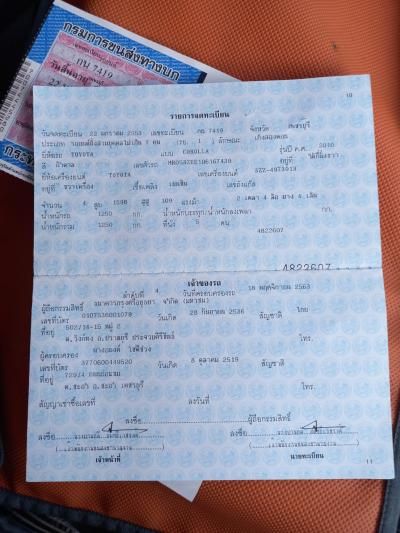 กรมการขนส่งทางบก
กน 7419
วันสิ้นอายุ
10
รายการจดทะเบียน
วันจดทะเบียน 22 มกราคม 2553 เลขทะเบียน กน 7419 จังหวัด เพชรบุรี
ประเภท รถยนต์นั่งส่วนบุคคลไม่เกิน 7 คน (รย. 1 ) ลักษณะ เก๋งสองตอน
ยี่ห้อรถ TOYOTA แบบ COROLLA รุ่นปี ค.ศ. 2010
สี เลขตัวรถ อยู่ที่
ยี่ห้อเครื่องยนต์ TOYOTA เลขเครื่องยนต์ 3ZZ-4973913
อยู่ที่ ขวาเครื่อง เชื้อเพลิง เบนซิน เลขถังแก๊ส
จำนวน 4 สูบ 1598 ซีซี แรงม้า 2 เพลา 4 ล้อ ยาง 4 เส้น
น้ำหนักรถ 1250 กก. น้ำหนักบรรทุก/น้ำหนักลงเพลา กก.
น้ำหนักรวม 1250 กก. ที่นั่ง คน
4822607
4822607
เจ้าของรถ
ลำดับที่ 4 วันที่ครอบครองรถ 18 พฤศจิกายน 2563
ผู้ถือกรรมสิทธิ์ ธนาคารกรุงศรีอยุธยา จำกัด (มหาชน)
เลขที่บัตร 0107536001079 วันเกิด 28 กันยายน 2536 สัญชาติ ไทย
ที่อยู่ 502/14-15 หมู่ 2
ต.วังก์พง อ.ปราณบุรี ประจวบคีรีขันธ์ โทร.
ผู้ครอบครอง
เลขที่บัตร 3770600449520 วันเกิด 8 ตุลาคม 2519 สัญชาติ
ที่อยู่
ต.ชะอำ อ.ชะอำ เพชรบุรี โทร.
สัญญาเช่าซื้อเลขที่ ลงวันที่
ลงชื่อ ผู้ถือกรรมสิทธิ์
ลงชื่อ ลงชื่อ
เจ้าหน้าที่ นายทะเบียน
11